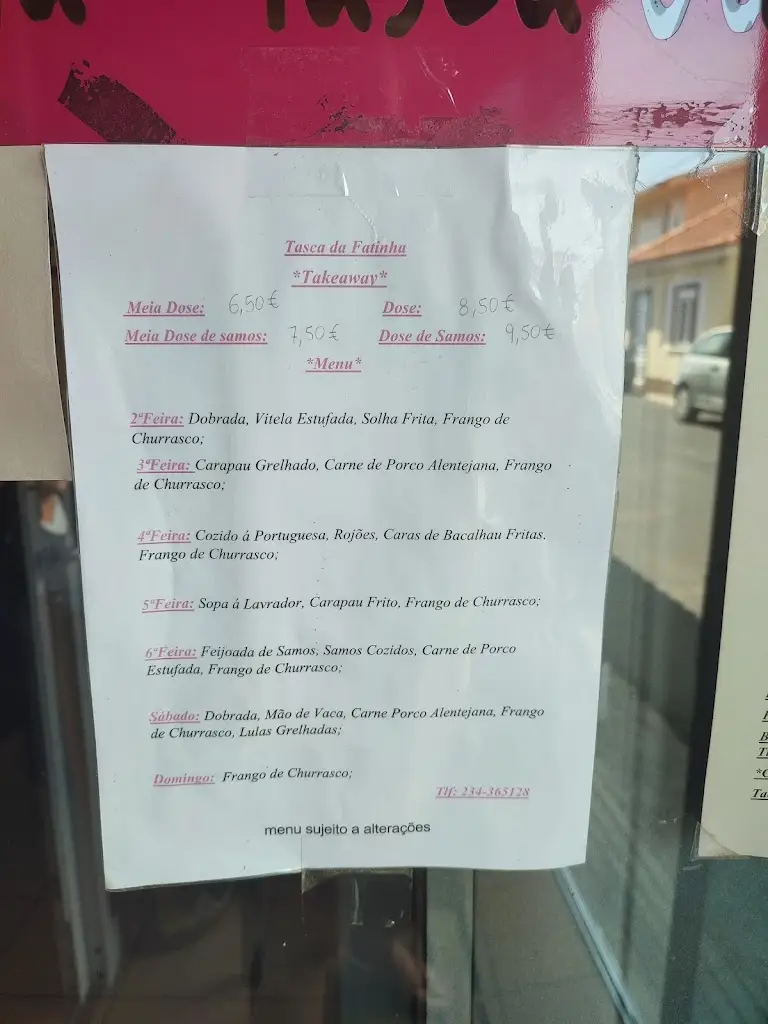 Tasca da Fatinha
*Takeaway*
Meia Dose: 6,50€ Dose: 8,50€
Meia Dose de samos: 7,50€ Dose de Samos: 9,50€
*Menu*
2ªFeira: Dobrada, Vitela Estufada, Solha Frita, Frango de
Churrasco;
3ªFeira: Carapau Grelhado, Carne de Porco Alentejana, Frango
de Churrasco;
4ªFeira: Cozido á Portuguesa, Rojões, Caras de Bacalhau Fritas,
Frango de Churrasco;
5ªFeira: Sopa á Lavrador, Carapau Frito, Frango de Churrasco;
6ªFeira: Feijoada de Samos, Samos Cozidos, Carne de Porco
Estufada, Frango de Churrasco;
Sábado: Dobrada, Mão de Vaca, Carne Porco Alentejana, Frango
de Churrasco, Lulas Grelhadas;
Domingo: Frango de Churrasco;
Tlf: 234-365128
menu sujeito a alterações